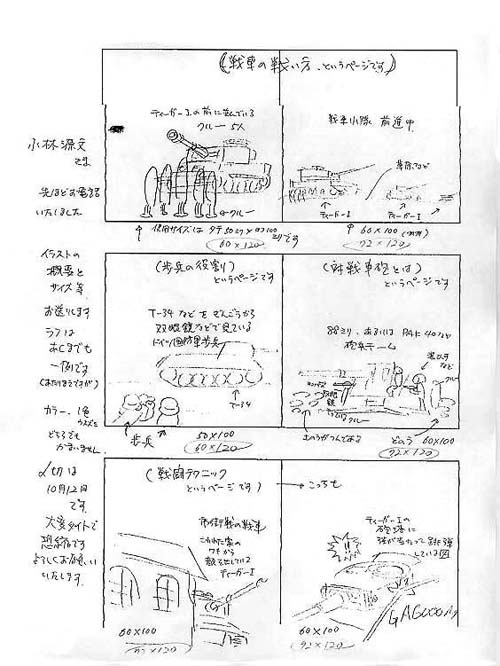 《戦車の戦い方、というページです》
小林源文
さま
先ほどお電話
いたしました
イラストの
概要と
サイズ等
お送りします
ラフは
あくまでも
一例です
カラー、1色
どちらでも
かまいません
〆切は
10月12日
です。
大変タイトで
恐縮です
よろしくお願い
いたします。
ティーガーIの前に並んでいる
クルー5人
クルー
戦車小隊 前進中
ティーガーI
ティーガーI
使用サイズは タテ50ミリ×ヨコ100
ミリです
60×120
60×100
72×120
(歩兵の役割)
というページです
T-34などをざんごうから
双眼鏡などで見ている
ドイツ国防軍歩兵
T-34
歩兵
50×100
60×120
(対戦車砲とは)
というページです
88ミリ、あるいはPAK40など
砲兵チーム
クルー
どのう
60×100
72×120
(戦闘テクニック
というページです)
こっちも
市街戦の戦車
こわれた家の
ワキから
ティーガーI
60×100
72×120
ティーガーIの
砲塔に
弾が当たって跳弾
している図
GAGOOOAN
60×100
72×120